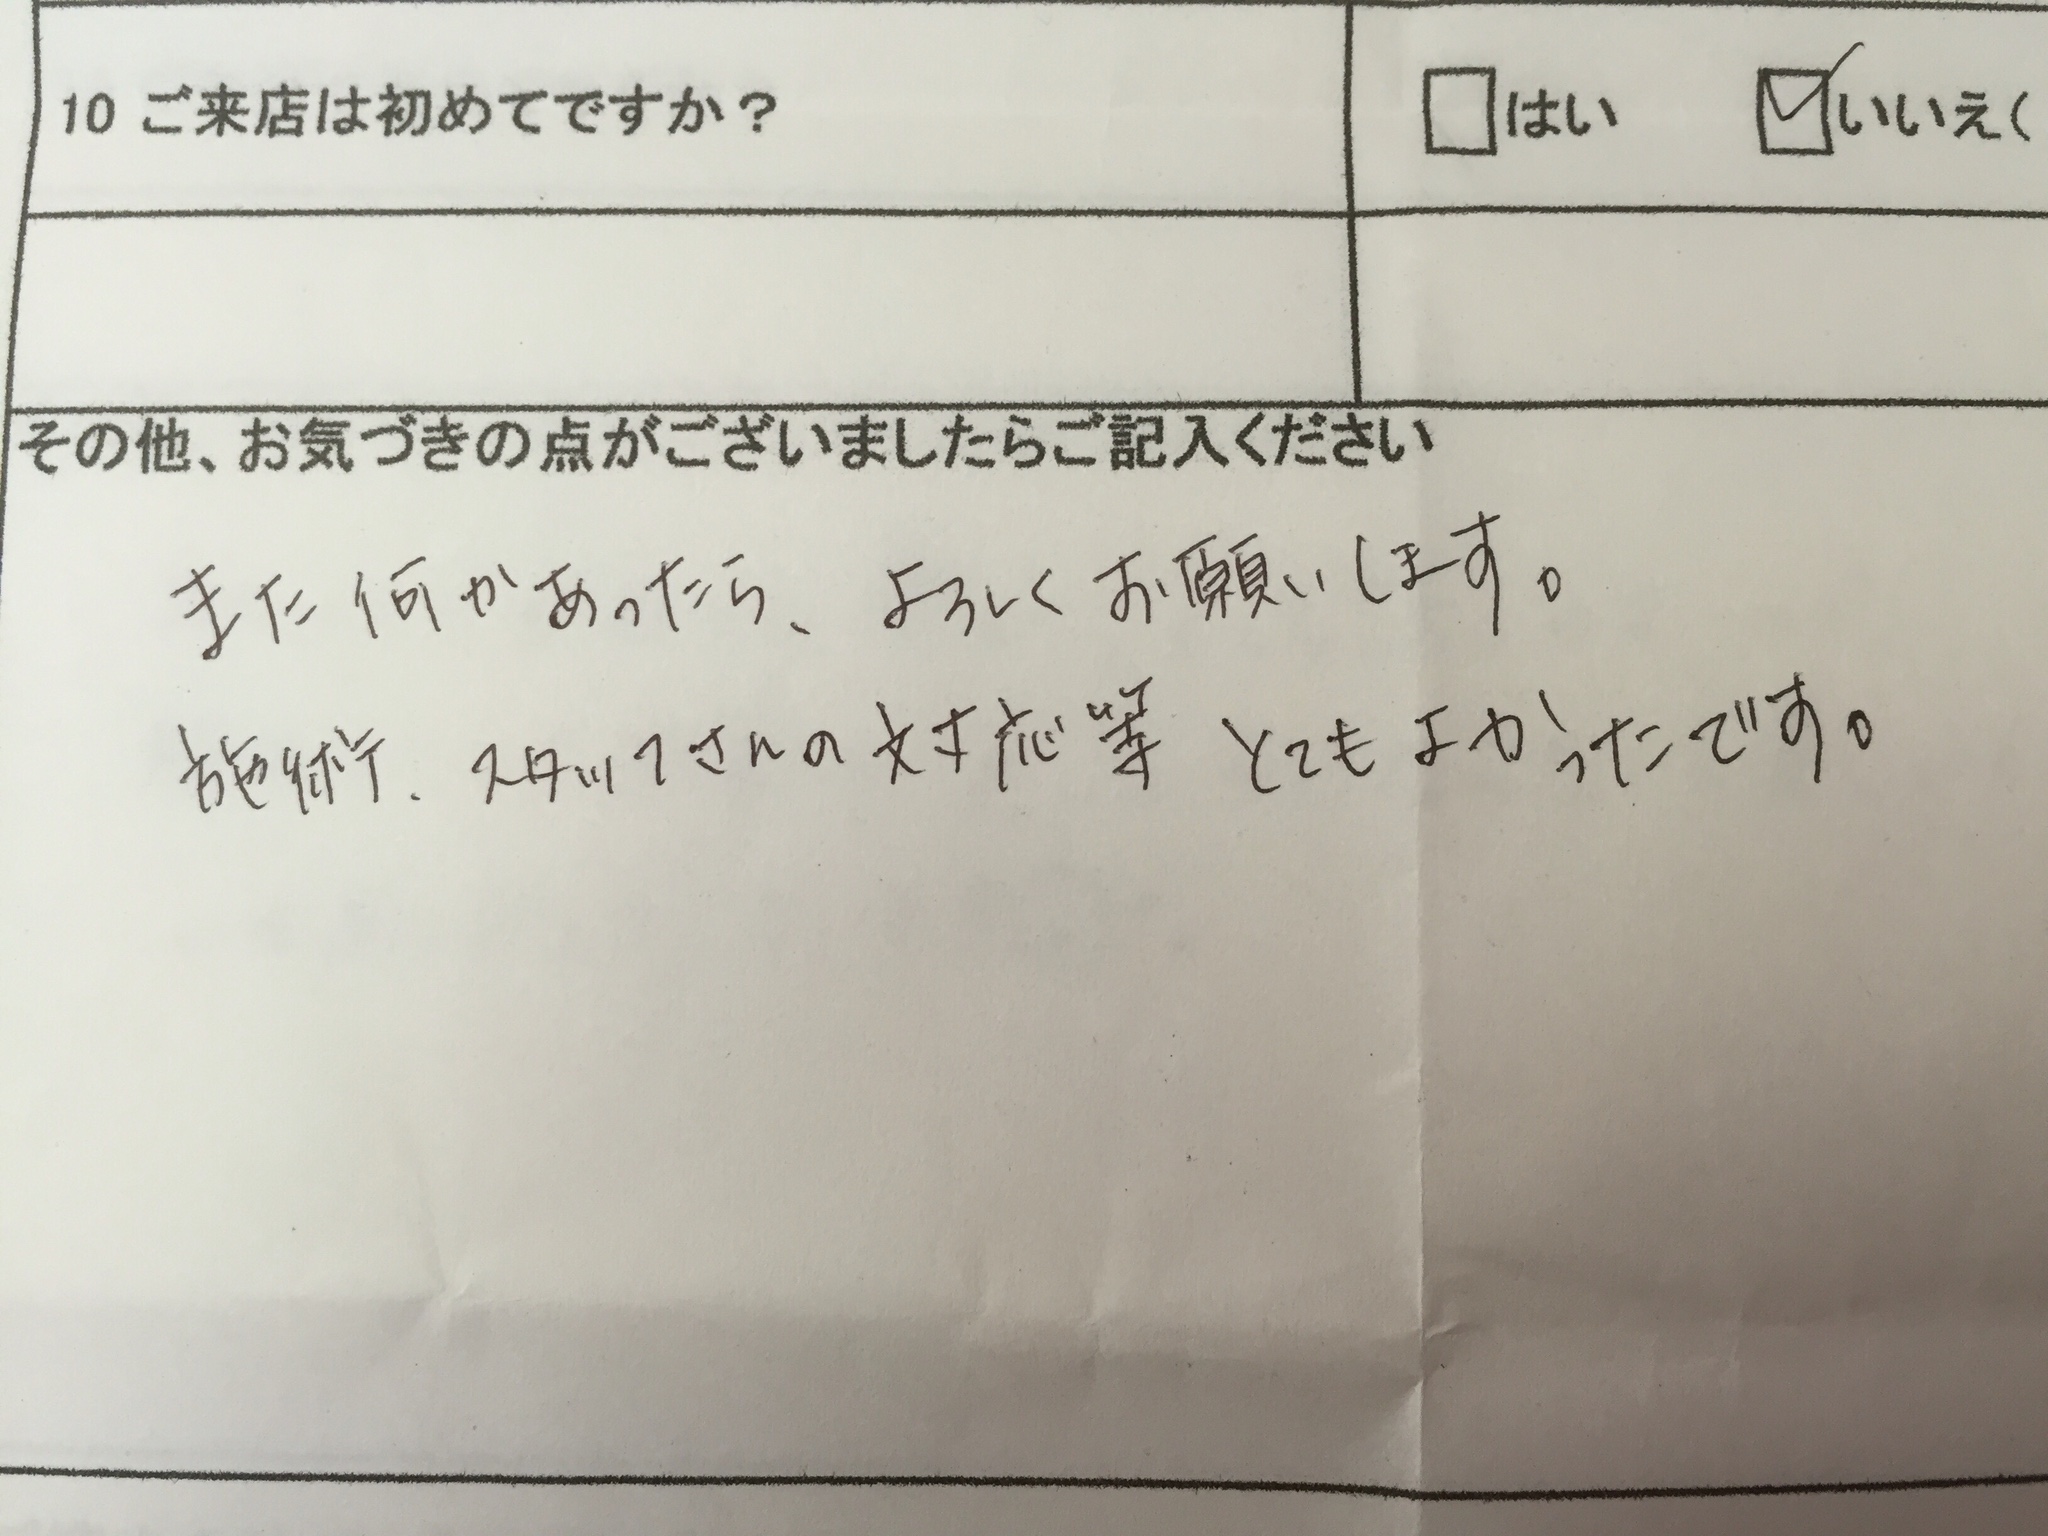 10 ご来店は初めてですか？ はい いいえ(
その他、お気づきの点がございましたらご記入ください
また何かあったら、よろしくお願いします。
施術、スタッフさんの対応等とてもよかったです。